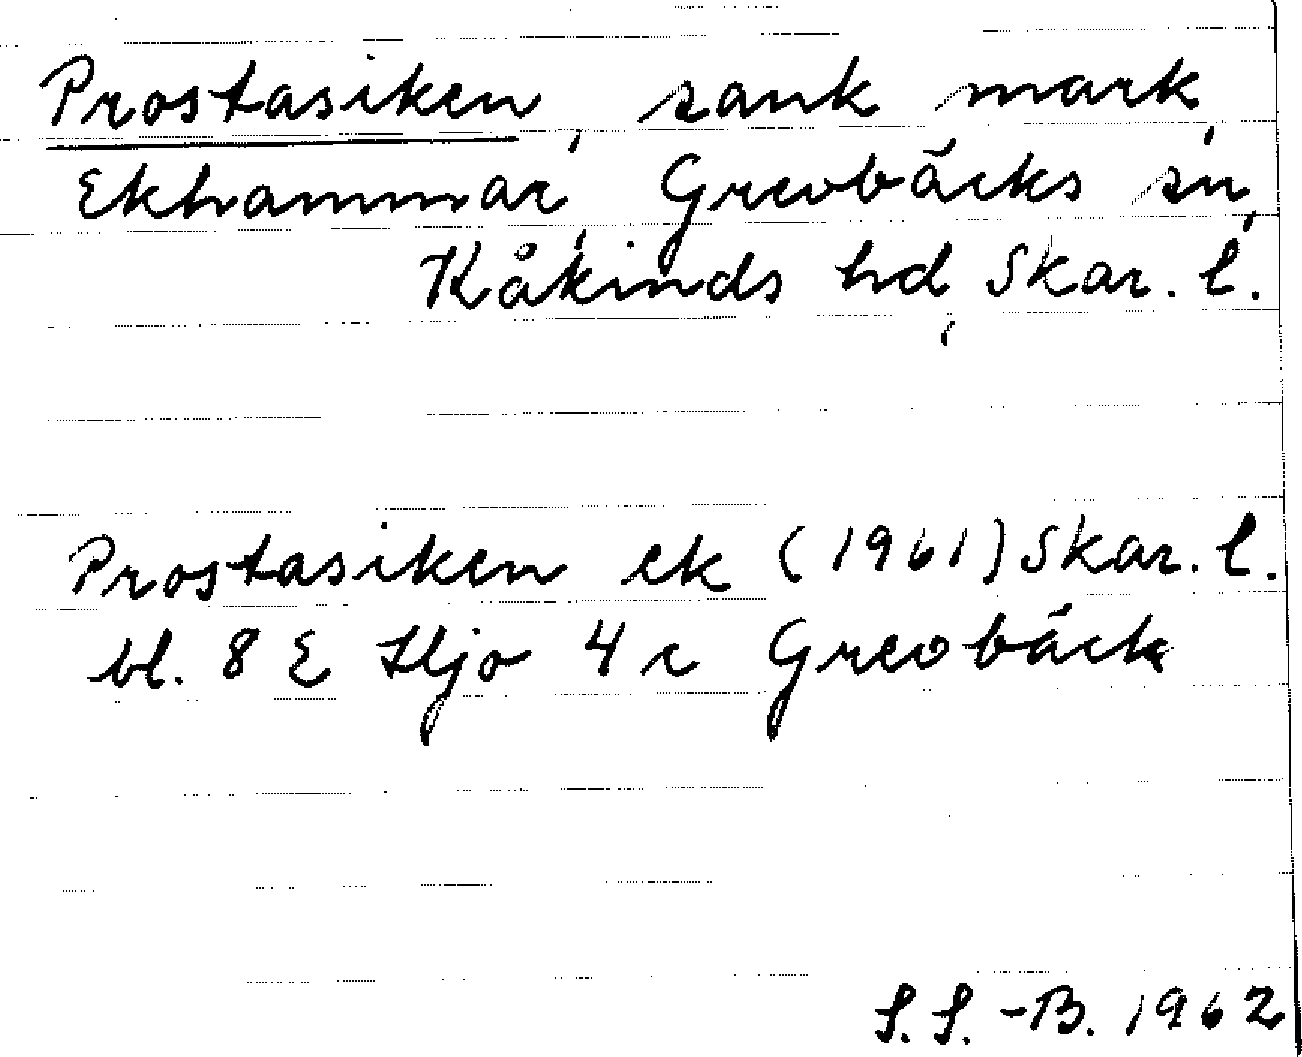 Prostasiken, sank mark,
Ekhammar, Grevbäcks sn,
Kåkinds hd, Skar. l.
Prostasiken ek (1961) Skar. l.
bl. 8 E Hjo 4 c Grevbäck
S. S. -B. 1962